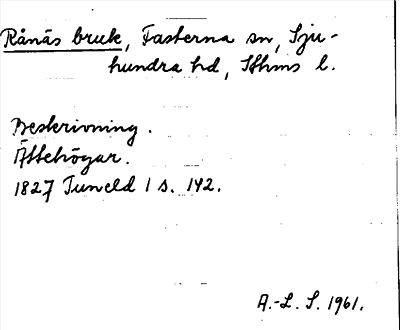 Rånäs bruk, Fasterna sn, Sju-
hundra hd, Sthms l.
Beskrivning.
Ättehögar.
1827 Tuneld 1 s. 142.
A.-L. S. 1961.